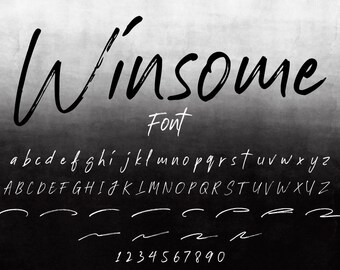 Winsome
Font
abcdefghijklmnopqrstuvwxyz
ABCDEFGHIJKLMNOPQRSTUVWXYZ
1234567890